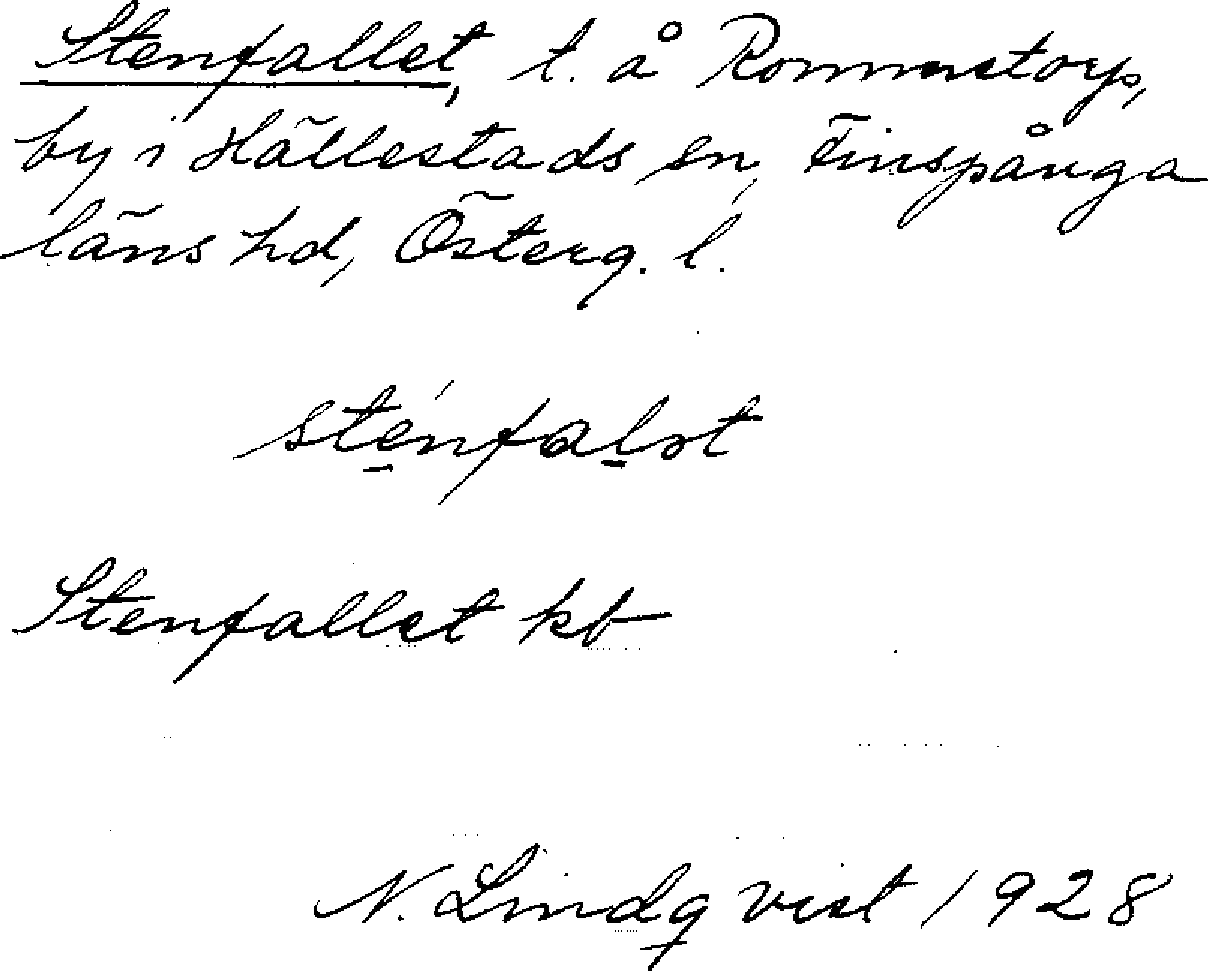 Stenfallet, t. å Rommetorp,
by i Hällestads sn, Finspånga
läns hd, Österg. l.
sténfalət
Stenfallet kb
N. Lindqvist 1928